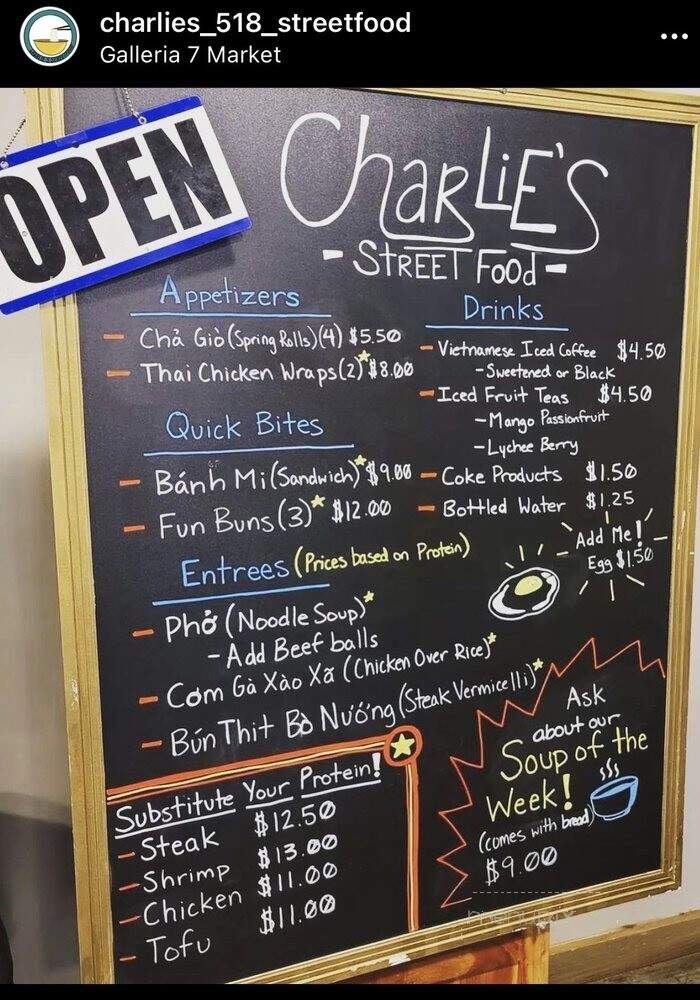 charlies_518_streetfood
Galleria 7 Market
OPEN
CharLiE'S
- STREET Food -
Appetizers
- Chả Giò (Spring Rolls) (4) $5.50
- Thai Chicken Wraps (2)★ $8.00
Quick Bites
- Bánh Mi (Sandwich)★ $9.00
- Fun Buns (3)★ $12.00
Drinks
- Vietnamese Iced Coffee $4.50
- Sweetened or Black
- Iced Fruit Teas $4.50
- Mango Passionfruit
- Lychee Berry
- Coke Products $1.50
- Bottled Water $1.25
Add Me!
Egg $1.50
Entrees (Prices based on Protein)
- Phở (Noodle Soup)★
- Add Beef balls
- Cơm Gà Xào Xã (Chicken Over Rice)★
- Bún Thit Bò Nướng (Steak Vermicelli)★
Substitute Your Protein!
- Steak $12.50
- Shrimp $13.00
- Chicken $11.00
- Tofu $11.00
Ask
about our
Soup of the
Week!
(comes with bread)
$9.00